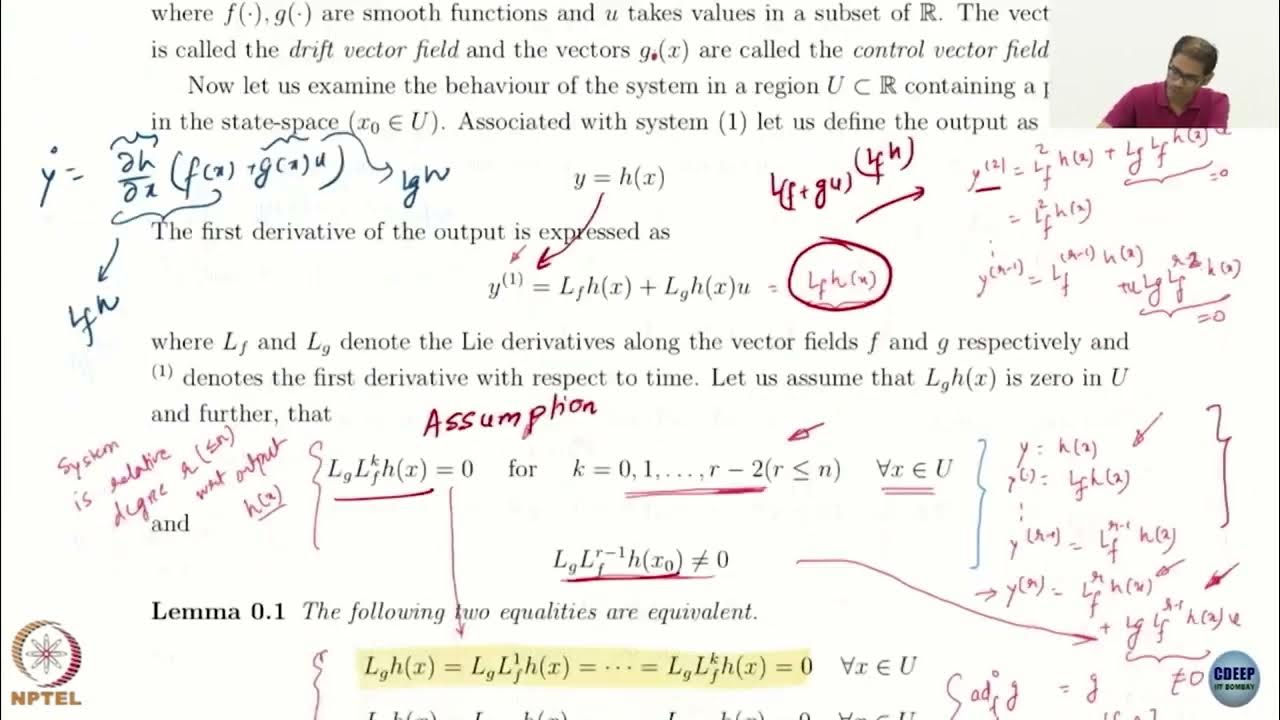 where f(·), g(·) are smooth functions and u takes values in a subset of ℝ. The vect
is called the drift vector field and the vectors g.(x) are called the control vector field
Now let us examine the behaviour of the system in a region U ⊂ ℝ containing a p
in the state-space (x₀ ∈ U). Associated with system (1) let us define the output as
ẏ = ∂h/∂x (f(x) + g(x)u)
Lgh
Lfh
y = h(x)
L(f+gu) (Lfh)
y⁽²⁾ = L²f h(x) + Lg Lf h(x) u
=0
= L²f h(x)
⋮
y⁽ʳ⁻¹⁾ = Lf⁽ʳ⁻¹⁾ h(x)
+u Lg Lfʳ⁻² h(x)
=0
The first derivative of the output is expressed as
y⁽¹⁾ = Lfh(x) + Lgh(x)u = Lfh(x)
where Lf and Lg denote the Lie derivatives along the vector fields f and g respectively and
⁽¹⁾ denotes the first derivative with respect to time. Let us assume that Lgh(x) is zero in U
and further, that
Assumption
System
is relative
degree r (≤n)
wrt output
h(x)
LgLfᵏh(x) = 0 for k = 0, 1, . . . , r − 2(r ≤ n) ∀x ∈ U
and
LgLfʳ⁻¹h(x₀) ≠ 0
y = h(x)
y⁽¹⁾ = Lfh(x)
⋮
y⁽ʳ⁻¹⁾ = Lfʳ⁻¹ h(x)
→ y⁽ʳ⁾ = Lfʳ h(x)
+ Lg Lfʳ⁻¹ h(x) u
≠0
Lemma 0.1 The following two equalities are equivalent.
Lgh(x) = LgLf¹h(x) = · · · = LgLfᵏh(x) = 0 ∀x ∈ U
ad⁰f g = g
NPTEL
CDEEP
IIT BOMBAY